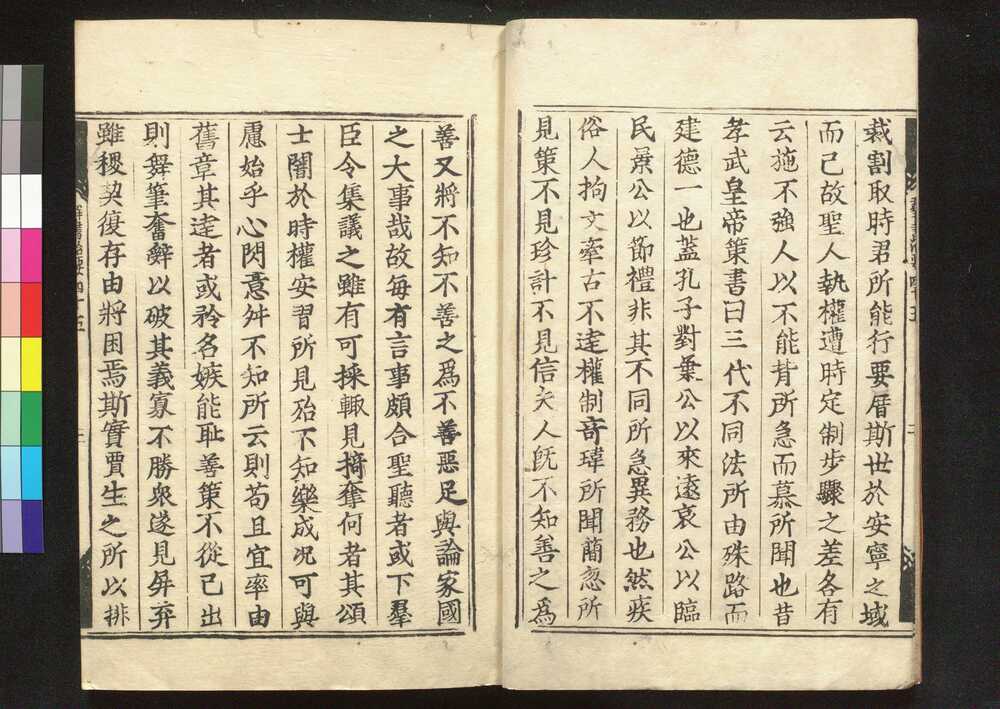 裁割取時君所能行要厝斯世於安寧之域
而已故聖人執權遭時定制步驟之差各有
云施不強人以不能背所急而慕所聞也昔
孝武皇帝策書曰三代不同法所由殊路而
建德一也蓋孔子對葉公以來遠哀公以臨
民景公以節禮非其不同所急異務也然疾
俗人拘文牽古不達權制奇瑋所聞簡忽所
見策不見珍計不見信夫人旣不知善之爲
善又將不知不善之爲不善惡足與論家國
之大事哉故每有言事頗合聖聽者或下羣
臣令集議之雖有可採輙見掎奪何者其頑
士闇於時權安習所見殆不知樂成况可與
慮始乎心閃意舛不知所云則苟且宜率由
舊章其達者或矜名嫉能恥善策不從己出
則舞筆奮辭以破其義寡不勝衆遂見屏弃
雖稷契復存由將困焉斯實賈生之所以排
群書治要四十五
二